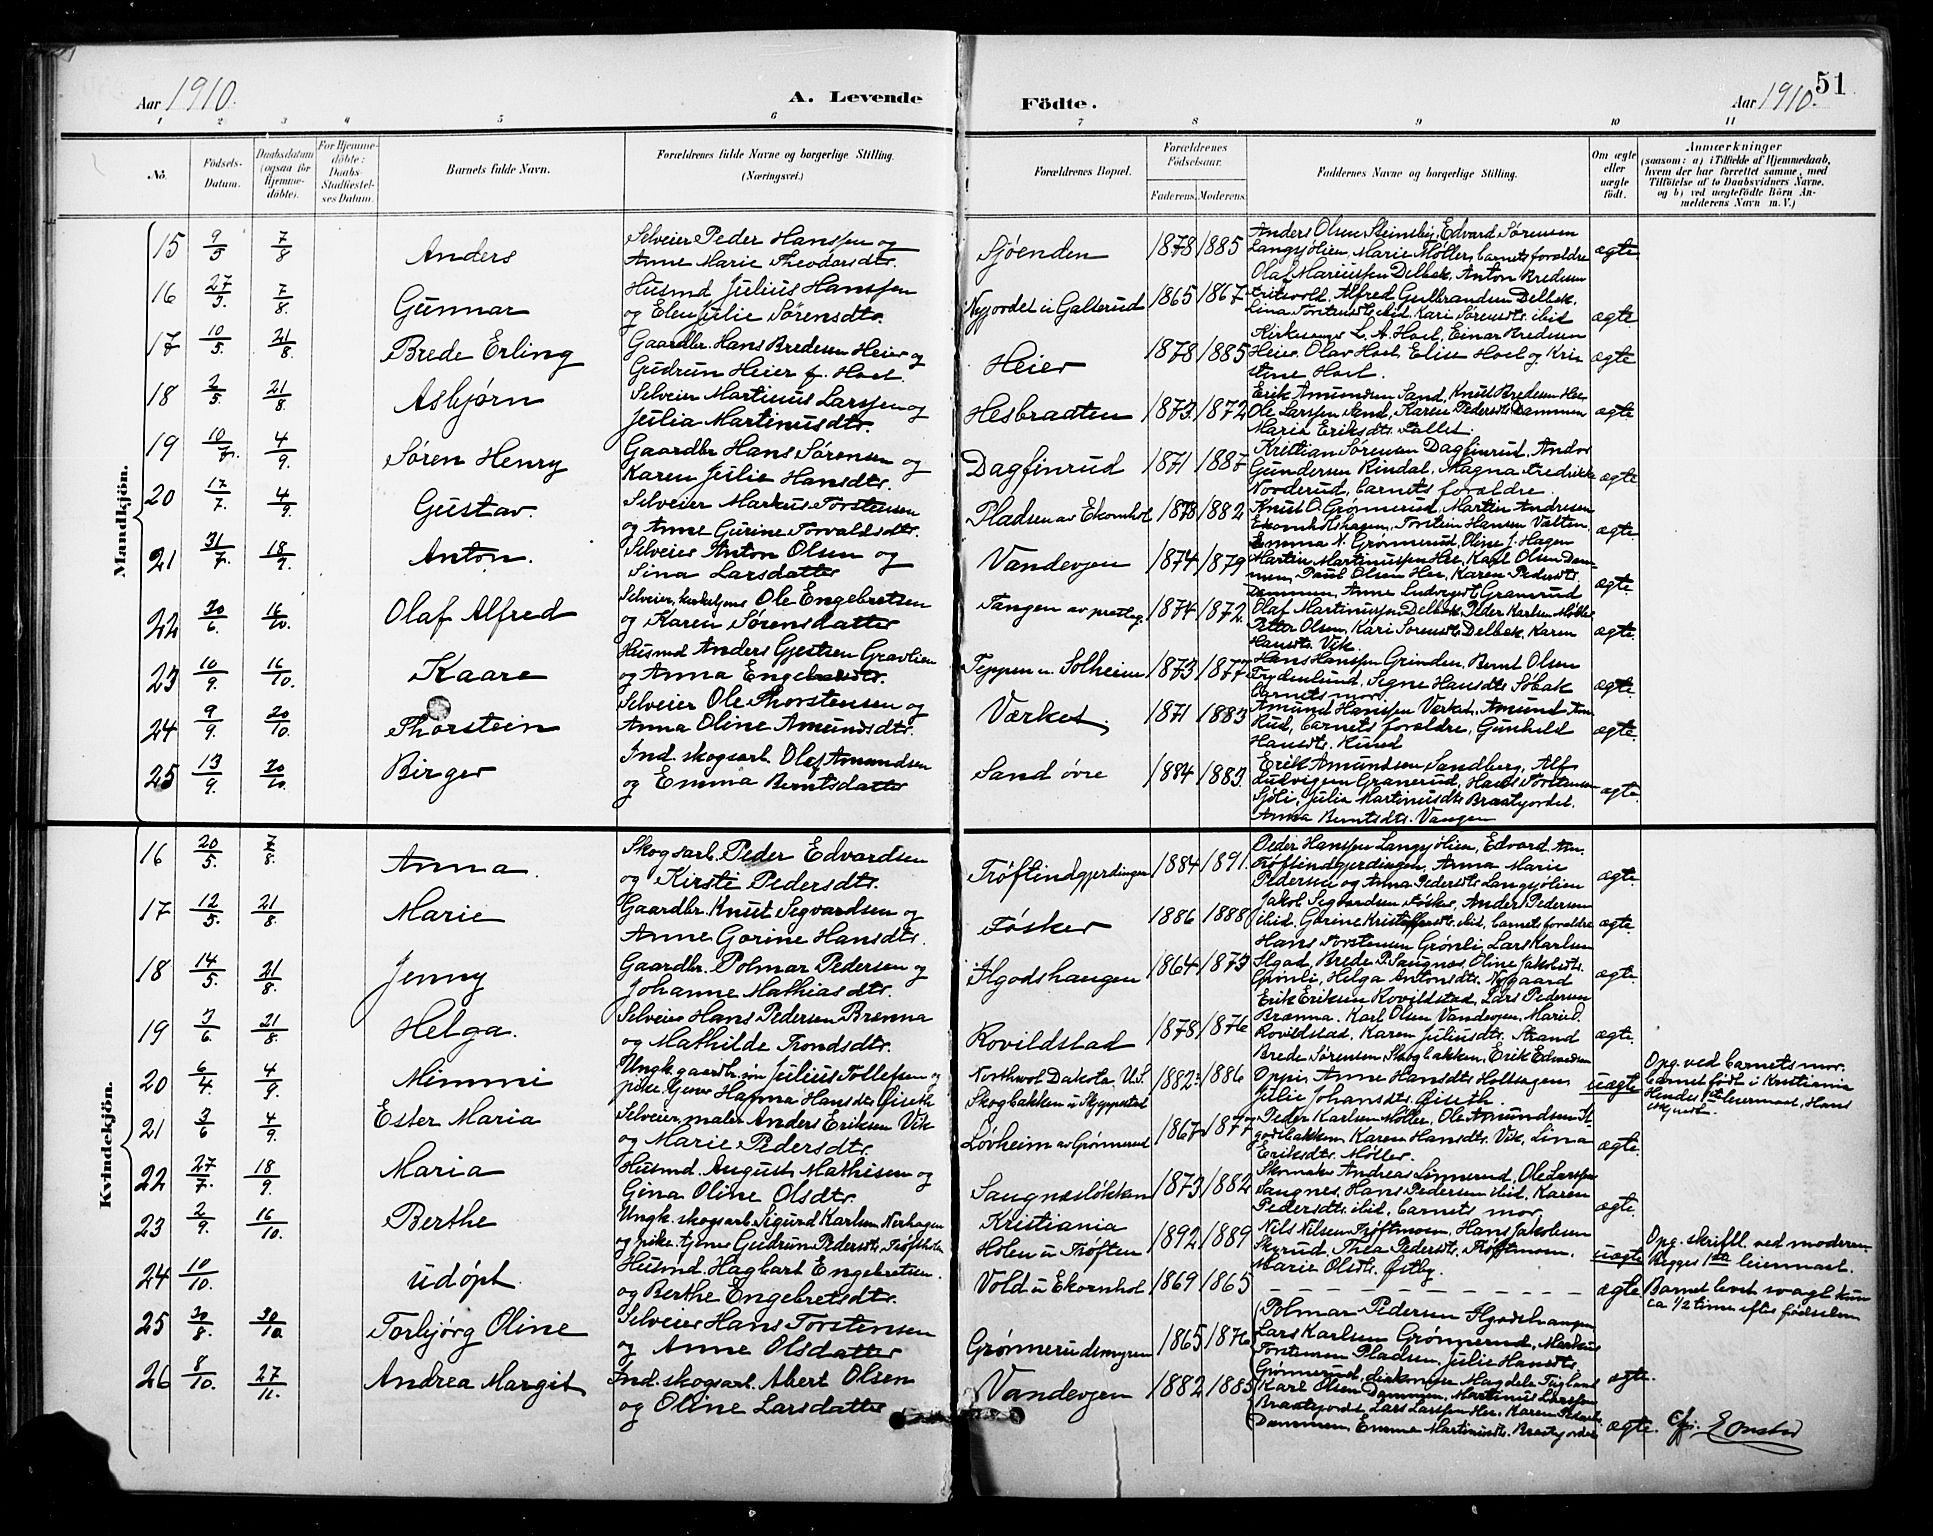 Aar 1910.
A. Levende
Födte.
Aar 1910.
51
1 2 3 4 5 6 7 8 9 10 11
No.
Födsels-Datum.
Daabsdatum (ogsaa för Hjemmedöbte).
For Hjemmedöbte: Daabs-Stadfæstelses Datum.
Barnets fulde Navn.
Forældrenes fulde Navne og borgerlige Stilling.
(Næringsvei.)
Forældrenes Bopæl.
Forældrenes Födselsaar.
Faderens. Moderens.
Faddernes Navne og borgerlige Stilling.
Om ægte eller uægte födt.
Anmærkninger
(saasom: a) i Tilfælde af Hjemmedaab, hvem der har forrettet samme, med Tilföielse af to Daabsvidners Navne, og b) ved uægtefödte Börn Anmelderens Navn m. V.)
Mandkjön.
15 9/5 7/8 Anders
Selveier Peder Hanssen og
Anne Marie Theodorsdtr.
Sjøenden 1878 1885
Anders Olsen Steinsby, Edvard Sørensen
Langsjølien, Marie Møller, barnets forældre
ægte
16 27/5 7/8 Gunnar
Husmd Julius Hanssen
og Elen Julie Sørensdtr.
Nyjordet u Galterud 1865 1867
Olaf Mariussen Delbæk, Anton Bredesen
Alfred Gulbrandsen Delbæk,
Lina Torstensdtr. ibid Kari Sørensdtr. ibid
ægte
17 10/5 21/8 Brede Erling
Gaardbr. Hans Bredesen Heier og
Gudrun Heier f. Hoel.
Heier 1878 1885
Kirkesanger L. A. Hoel, Einar Bredesen
Heier, Olav Hoel, Elise Hoel og Kri
stine Hoel.
ægte
18 2/5 21/8 Asbjørn
Selveier Martinus Larssen og
Julia Martinusdtr.
Hesbraaten 1873 1872
Erik Amundsen Sand, Knut Bredesen Her
Ole Larssen Sand, Karen Pedersdtr Dammen
Marie Eriksdtr. Fallet.
ægte
19 10/7 4/9 Søren Henry
Gaardbr Hans Sørensen og
Karen Julie Hansdtr.
Dagfinrud 1871 1887
Kristian Sørensen Dagfinrud, Andor
Gundersen Rindal, Magna Fredrikke
Norderud, barnets forældre.
ægte
20 17/7 4/9 Gustav.
Selveier Markus Torstensen
og Anne Gurine Torvaldsdtr.
Pladsen av Ekornhol 1878 1882
Knut O. Grønnerud, Martin Andresen
Ekornholshagen, Torstein Hansen Valten,
Emma N. Grønnerud, Oline J. Hagen
ægte
21 31/7 18/9 Anton.
Selveier Anton Olsen og
Sina Larsdatter
Vandevjen 1874 1879
Martin Martinussen Her, Karl Olsen Dam-
men, Paul Olsen Her, Karen Pedersdtr.
Dammen, Anne Ludvigsdtr Granerud
ægte
22 20/6 16/10 Olaf Alfred
Selveier, kirketjener Ole Engebretsen
og Karen Sørensdatter
Tangen av presteg. 1874 1872
Olaf Martinussen Delbæk, Peder Karlsen Møller
Petter Olsen, Kari Sørensdtr Delbæk, Karen
Hansdtr. Vik.
ægte
23 10/9 16/10 Kaare
Husmd Anders Gjestsen Gravlien
og Anna Engebretsdtr.
Teppen u Solheim 1873 1877
Hans Hanssen Grinden, Bernt Olsen
Frydenlund, Signe Hansdtr Søbak
barnets mor.
ægte
24 9/9 20/10 Thorstein
Selveier Ole Thorstensen og
Anna Oline Amundsdtr.
Værket 1871 1883
Amund Hanssen Værket, Amund Am
Rud, barnets forældre, Gunhild
Hansdtr. Rued
ægte
25 13/9 20/10 Birger
Ind. skogsarb. Olaf Amundsen
og Emma Berntsdatter
Sand øvre 1884 1883
Erik Amundsen Sandberg, Alf
Ludvigsen Granerud, Hans Torstensen
Sjöli, Julie Martinusdtr Braatejordet,
Anna Berntsdtr. Vangen
ægte
Kvindekjön.
16 20/5 7/8 Anna
Skogsarb. Peder Edvardsen
og Kirsti Pedersdtr.
Trøftindgjerdingen 1884 1891
Peder Hanssen Langsjølien, Edvard An.
Trøftindgjerdingen, Anna Marie
Pedersen og Anna Pedersdtr Langsjølien
ægte
17 12/5 21/8 Marie
Gaardbr. Knut Segvardsen og
Anne Gorine Hansdtr.
Føsker 1886 1888
Jakob Segvardsen Føsker, Ander Pedersen
ibid. Gorine Kristoffersdtr. ibid, barnets forældre
ægte
18 14/5 21/8 Jenny
Gaardbr. Polmar Pedersen og
Johanne Mathiasdtr.
Ilgodshaugen 1864 1873
Hans Torstensen Grønli, Lars Karlsen
Ilgod, Brede P. Saugnæs, Oline Jakobsdtr.
Grønli, Helga Antonsdtr. Nygaard
ægte
19 3/6 21/8 Helga.
Selveier Hans Pedersen Brenna
og Mathilde Trondsdtr.
Rovildstad 1878 1876
Erik Eriksen Rovildstad, Lars Pedersen
Brænna, Karl Olsen Vandevjen, Marie O.
Rovildstad, Karen Juliusdtr. Strand
ægte
20 6/4 4/9 Mimmi
Ungk. gaardbr.søn Julius Tollefsen og
pike tjener Hafma Hansdtr Øiseth
Northwol Dakota, U.S.
Skogbakken u Skyppestad 1882 1886
Brede Sørensen Skogbakken, Erik Edvardsen
Oppi, Anne Hansdtr Holthagen
Julie Johansdtr. Øiseth.
uægte
Opg. ved barnets mor.
Barnet født i Kristiania
Hendes 1ste leiermaal, Hans
21 3/6 4/9 Ester Maria
Selveier, maler Anders Eriksen Vik
og Marie Pedersdtr.
Løvheim av Grønnerud 1867 1877
Peder Karlsen Möller, Ole Amundsen Il
godsbakken, Karen Hansdtr. Vik, Lina
Eriksdtr. Möller.
ægte
22 27/7 18/9 Maria
Husmd. August Mathisen og
Gina Oline Olsdtr.
Saugnæsløkken 1873 1882
Skrmaker Andreas Linnerud, Ole Larssen
Saugnes, Hans Pedersen ibid, Karen
Pedersdtr. ibid, barnets mor
ægte.
23 2/9 16/10 Berthe
Ungk. skogsarb. Sigurd Karlsen Nerhagen
og pike, tjener Gudrun Pedersdtr. Trøftholen
Kristiania
Holen u Trøften 1892 1889
Nils Nilsen Trøftmoen, Hans Jakobsen
Skyrud, Thea Pedersdtr. Trøftmoen,
Marie Olsdtr. Østby.
uægte
Opg. skriftl. ved moderen
Begges 1ste leiermaal.
24 10/10 udøpt.
Husmd. Hagbart Engebretsen.
og Berthe Engebretsdtr.
Vold u Ekornhol 1869 1865
ægte.
Barnet levet svagt kun
ca 1/2 time efter fødselen
25 30/8 30/10 Torbjørg Oline
Selveier Hans Torstensen
og Anne Olsdatter
Grønnerudsmyren 1865 1876
Polmar Pedersen Ilgodshaugen
Lars Karlsen Grønnerud, Markus
Torstensen Pladsen, Julie Hansdtr.
Grønnerud, Magdele Fugland
ægte.
26 8/10 27/11. Andrea Margit
Ind. skogsarb. Abert Olsen
og Oline Larsdatter
Vandevjen 1882 1885
Karl Olsen Dammen, Martinus Larssen
Braatejordet Lars Larssen Her. Karen Pedersdtr.
Dammen, Emma Martinusdtr. Braatejordet
ægte.